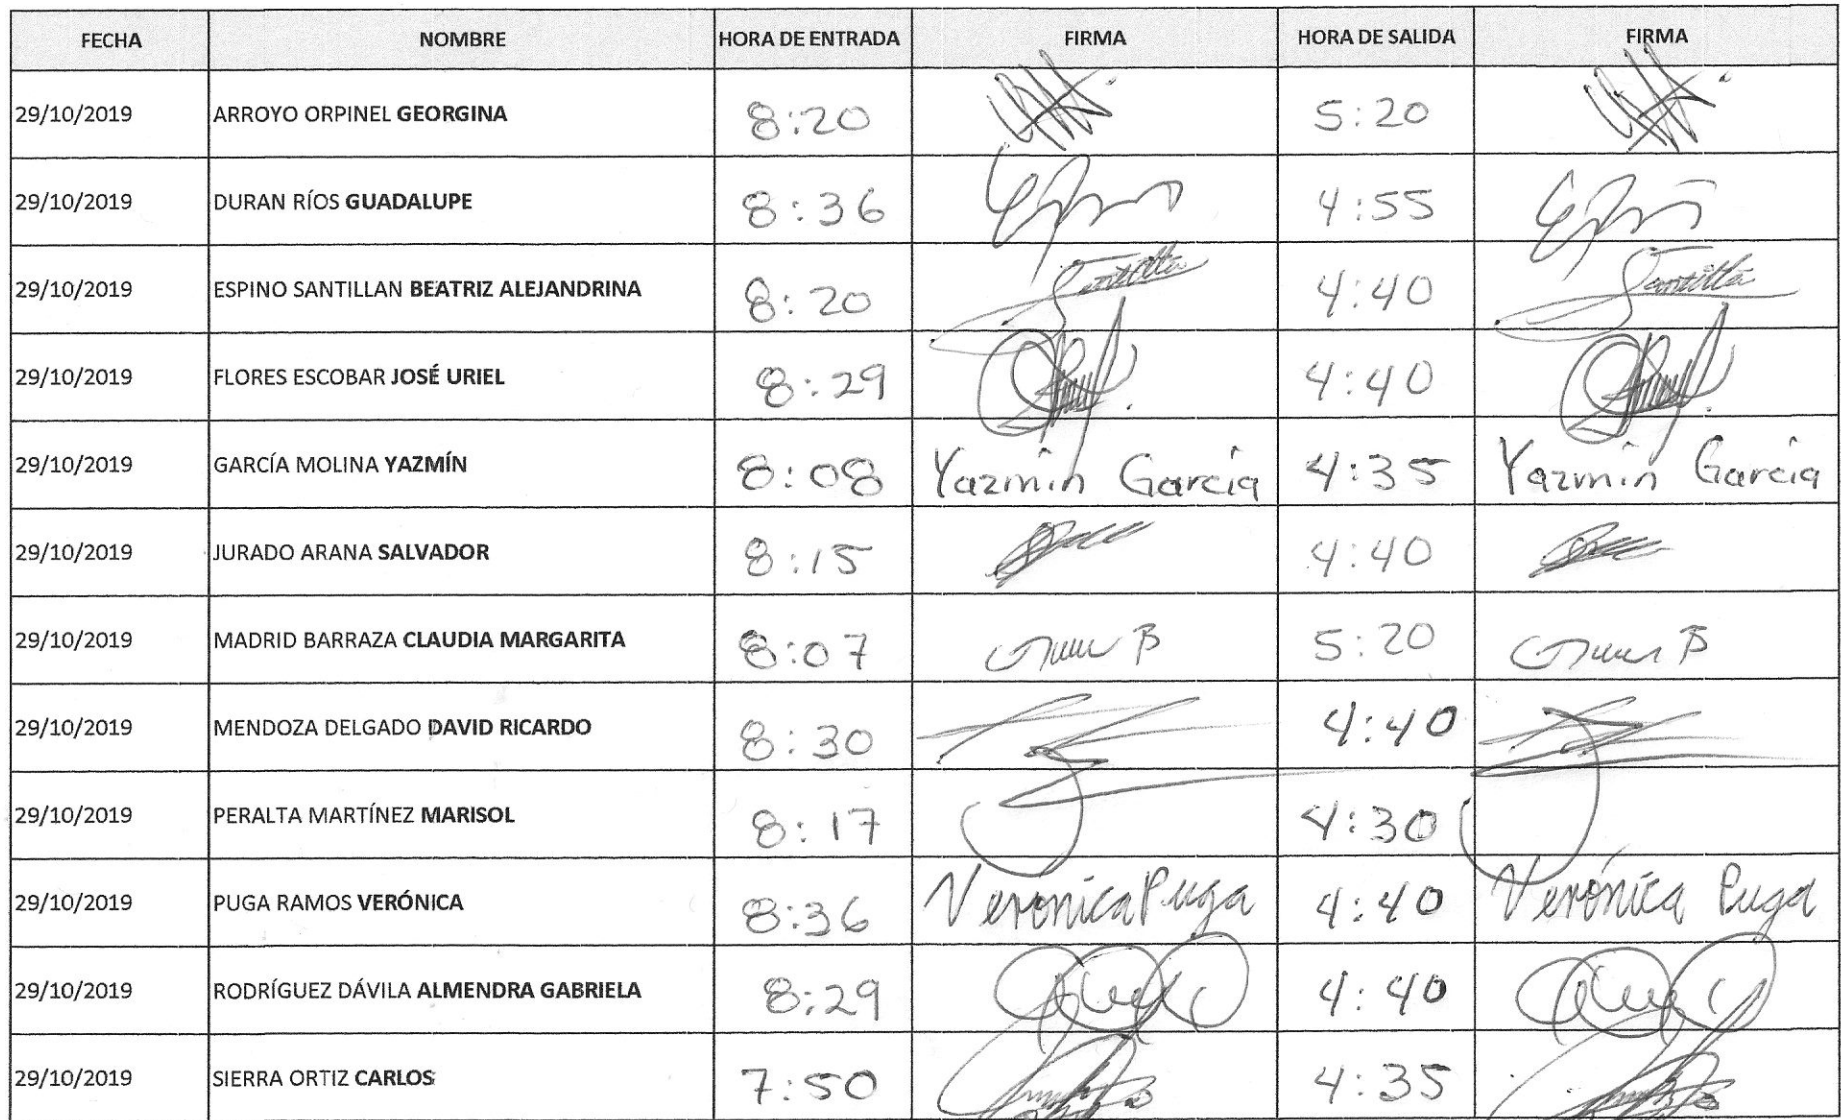 FECHA NOMBRE HORA DE ENTRADA FIRMA HORA DE SALIDA FIRMA
29/10/2019 ARROYO ORPINEL GEORGINA 8:20 5:20
29/10/2019 DURAN RÍOS GUADALUPE 8:36 4:55
29/10/2019 ESPINO SANTILLAN BEATRIZ ALEJANDRINA 8:20 4:40
29/10/2019 FLORES ESCOBAR JOSÉ URIEL 8:29 4:40
29/10/2019 GARCÍA MOLINA YAZMÍN 8:08 Yazmín García 4:35 Yazmín García
29/10/2019 JURADO ARANA SALVADOR 8:15 4:40
29/10/2019 MADRID BARRAZA CLAUDIA MARGARITA 8:07 5:20
29/10/2019 MENDOZA DELGADO DAVID RICARDO 8:30 4:40
29/10/2019 PERALTA MARTÍNEZ MARISOL 8:17 4:30
29/10/2019 PUGA RAMOS VERÓNICA 8:36 Verónica Puga 4:40 Verónica Puga
29/10/2019 RODRÍGUEZ DÁVILA ALMENDRA GABRIELA 8:29 4:40
29/10/2019 SIERRA ORTIZ CARLOS 7:50 4:35